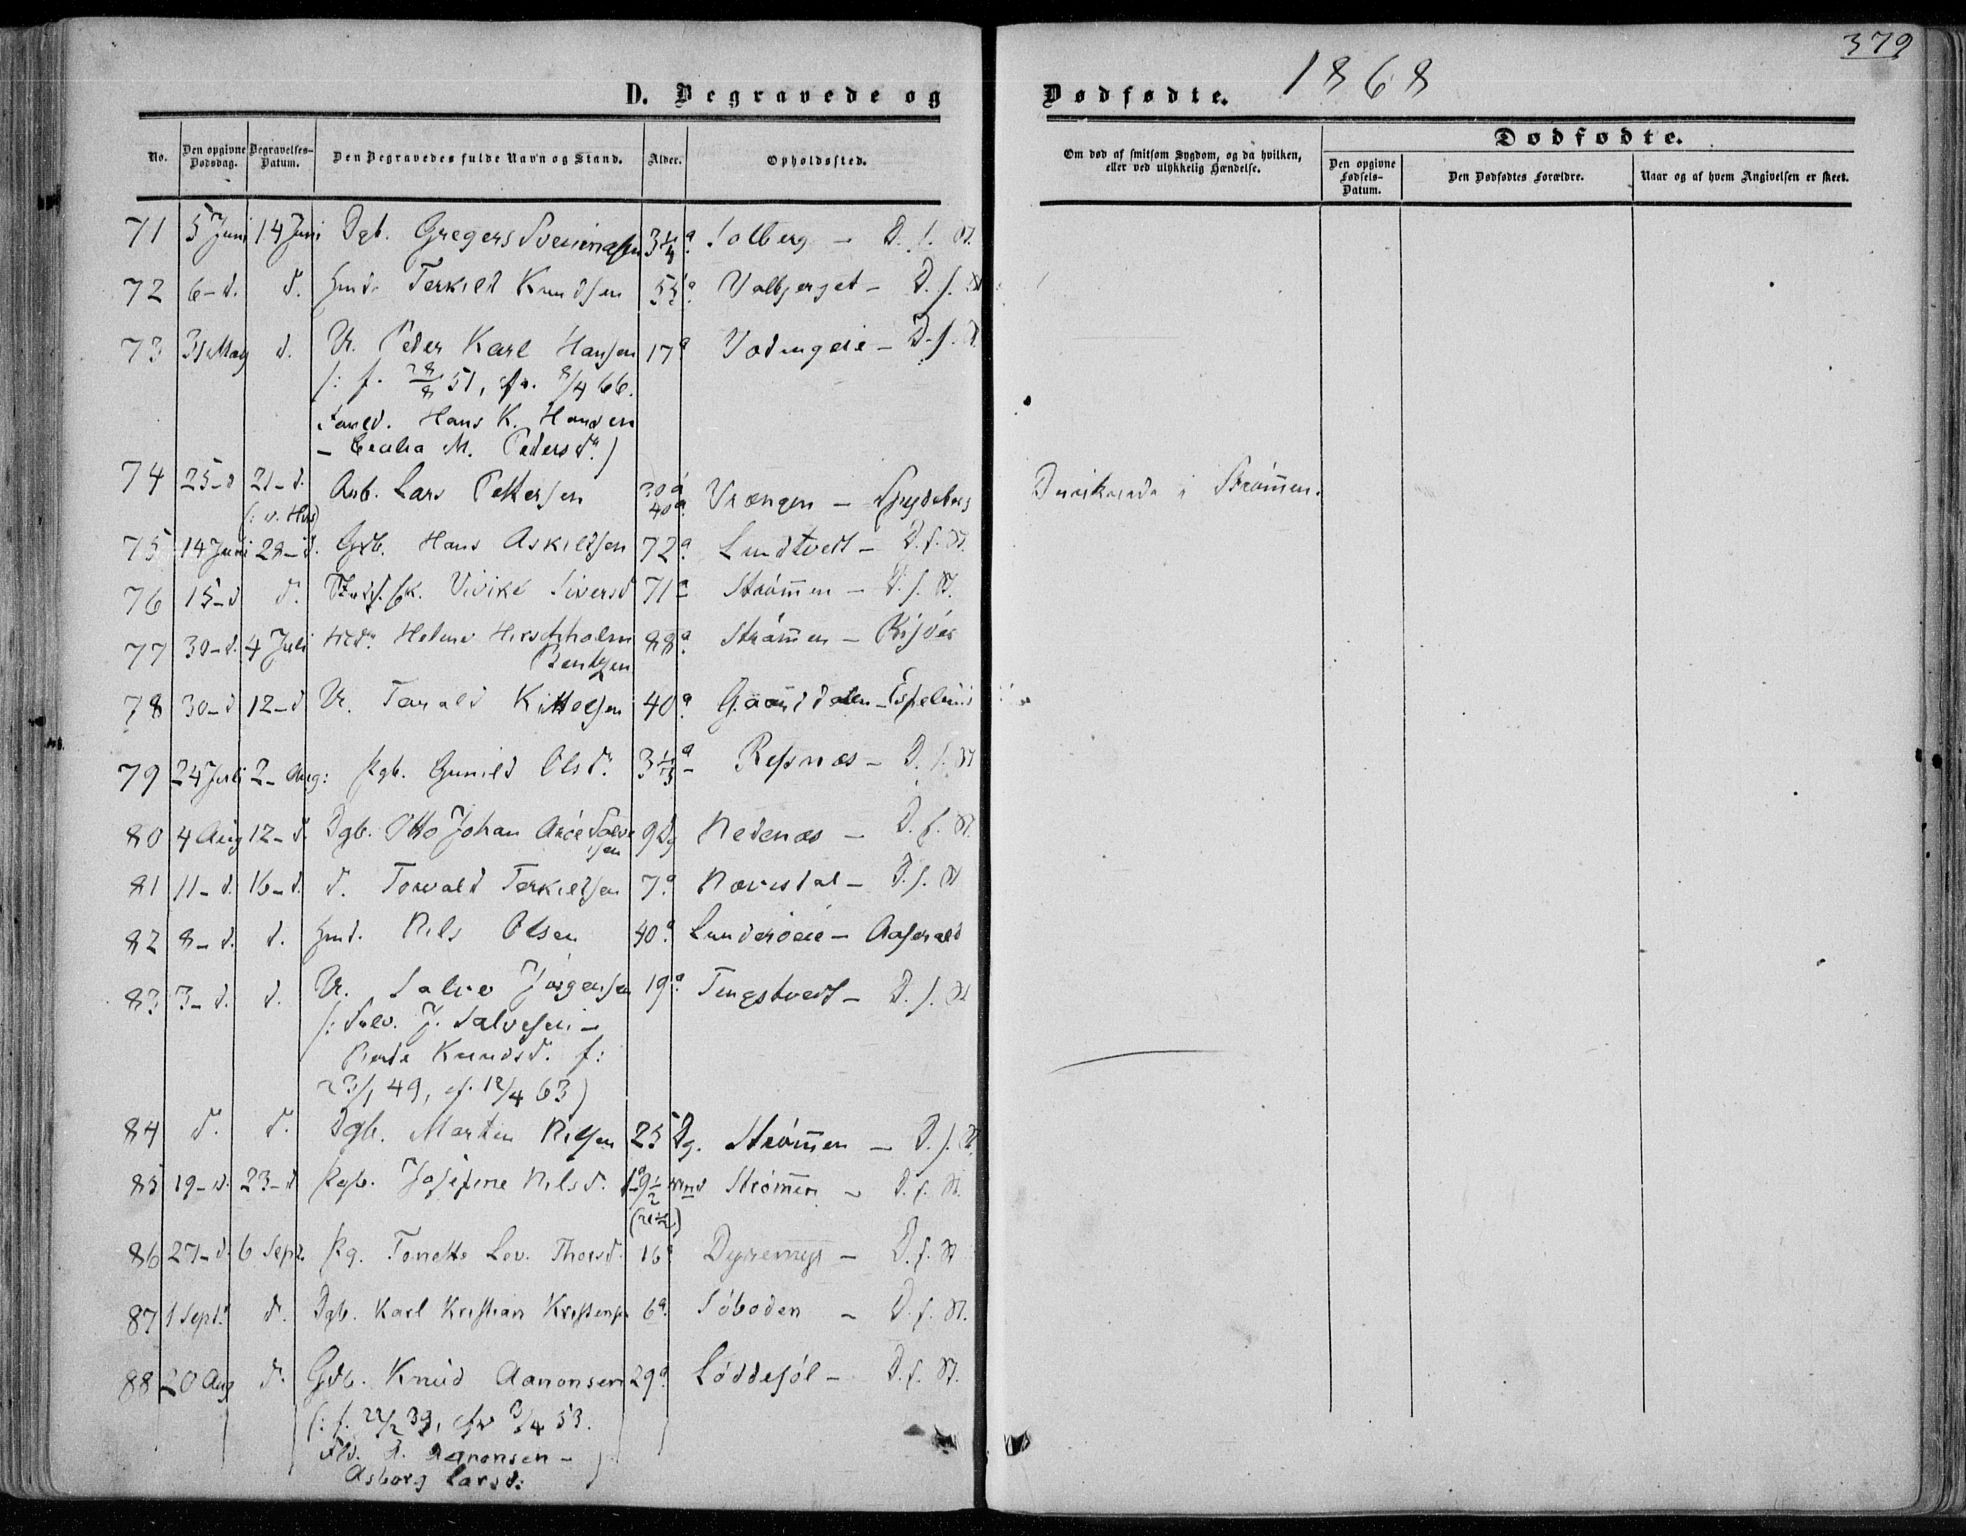 379
1868
D. Begravede og Dødfødte.
No. Den opgivne Dødsdag. Begravelses-Datum. Den Begravedes fulde Navn og Stand. Alder. Opholdssted. Om død af smitsom Sygdom, og da hvilken, eller ved ulykkelig Hændelse. Dødfødte. Den opgivne Fødsels-Datum. Den Dødfødtes Forældre. Naar og af hvem Angivelsen er skeet.
71 5 Juni 14 Juni Dgb. Gregers 3 1/4 a Solberg - D. f. St.
72 6 - d. d. Hmd. Terkild Knudsen 55 a Valbjerget - D. f. St
73 31 May d. U. Peder Karl Hansen 17 a - D. f. St
/: f. 28/8 51, cfr. 8/4 66.
Foræld. Hans K. Hansen
- Cecilia M. Pedersd. )
74 25 - d 21 - d. Arb. Lars Pettersen 30 a 40 a Vrængen - Spydeberg i Strømmen.
75 14 Juni 28 - d. Gdb. Hans Askildsen 72 a Lundtvedt - D. f. St.
76 15 - d d. Vivike Siversd 71 a Strømmen - D. f. St.
77 30 - d. 4 Juli Helene Hirschholm 88 a Strømmen - Risør
Bentzen
78 30 - d 12 - d U. Tarald Kittelsen 40 a
79 24 Juli 2 - Aug: Pgb. Gunild Olsd. 3 a Resnæs - D. f. St
80 4 Aug 12 - d. Dgb. Otto Johan Salve 9 Dg Nedenæs - D. f. St.
sen
81 11 - d. 16 - d. d. Torvald Terkildsen 7 a - D. f. St
82 8 - d. d. Hmd. Nils Olsen 40 a Lunderøeie - Aaserald
83 3 - d. d. U. Salve Jørgensen 19 a Tingstvedt - D. f. St
/: Salv. J. Salvesen -
Knudsd. f:
23/1 49, cf. 12/4 63)
84 d. d. Dgb. Martin Nilsen 25 Dg. Strømmen - D. f. St.
85 19 - d. 23 - d Pgb. Josefine Nilsd. 1 a 9 1/2 Strømmen - D. f. St.
86 27 - d. 6 Sept. Pg. Tonette Lov. Thorsd. 16 a Dyremyr - D. f. St
87 1 Sept. d. Dgb. Karl Kristian Kristensen 6 a. Søboden - D. f. St.
88 20 Aug d. Gdb. Knud Aanonsen 29 a Løddesøl - D. f. St.
(: f. 22/2 39, cfr 3/4 53.
Fld. A. Aanonsen -
Asborg Larsd: )